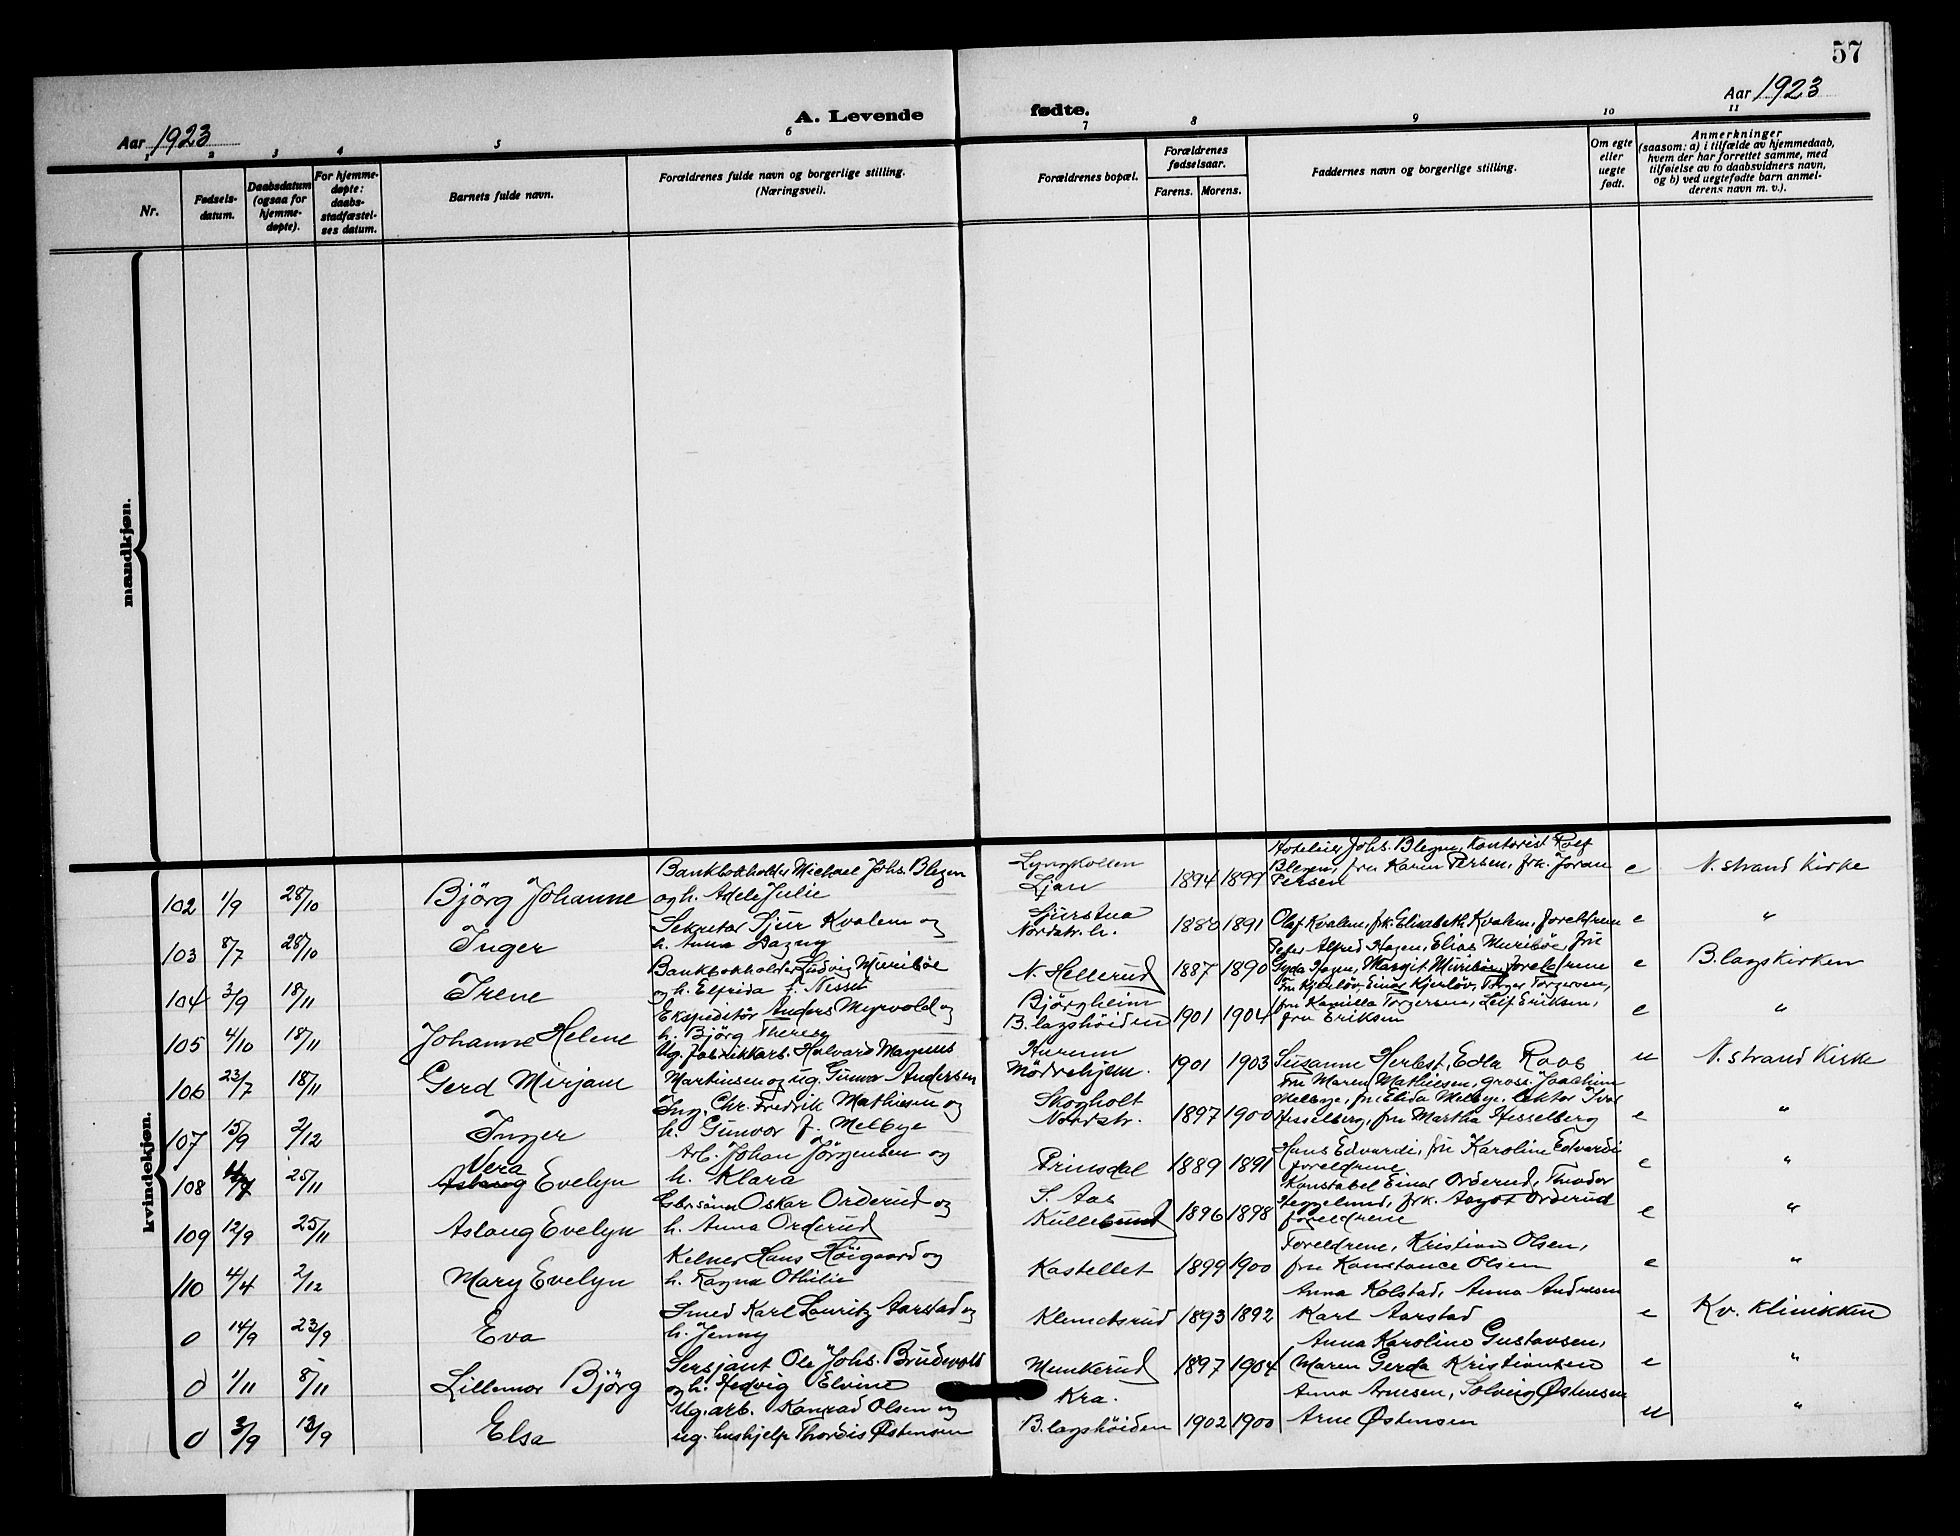 57
Aar 1923
A. Levende fødte.
Aar 1923
1 2 3 4 5 6 7 8 9 10 11
Nr.
Fødsels-
datum.
Daabsdatum
(ogsaa for
hjemme-
døpte).
For hjemme-
døpte:
daabs-
stadfæstel-
ses datum.
Barnets fulde navn.
Forældrenes fulde navn og borgerlige stilling.
(Næringsvei).
Forældrenes bopæl.
Forældrenes
fødselsaar.
Farens. Morens.
Faddernes navn og borgerlige stilling.
Om egte
eller
uegte
født.
Anmerkninger
(saasom: a) i tilfælde av hjemmedaab,
hvem der har forrettet samme, med
tilføielse av to daabsvidners navn,
og b) ved uegtefødte barn anmel-
derens navn m. v.).
mandkjøn.
kvindekjøn.
102 1/9 28/10 Björg Johanne
Bankbokholder Michael Johs. Blegen
og h. Adele Julie
Lyngkollen
Ljan
1894 1899
Hoteleier Johs. Blegen, Kontorist Rolf
Blegen, fru Karen Persen, frk. Joran
Persen
e N. strand Kirke
103 8/7 28/10 Inger
Sekretær Sjur Kvalem og
h. Anna Dagny
Sjurstua
Nordstr. h.
1880 1891
Olaf Kvalem, frk. Elisabeth Kvalem, foreldrene
e "
104 3/9 18/11 Irene
Bankbokholder Ludvig Muribøe
og h. Elfrida f. Nisset
N. Hellerud
1887 1890
Peter Alfred Hagen, Elias Muribøe, fru
Gyda Hagen, Margit Muribøe, foreldrene
e B.lagskirken
105 4/10 18/11 Johanne Helene
Ekspeditør Anders Myrvold og
h. Björg Therese
Björgheim
B.lagshöiden
1901 1904
Fru Kjerløv, Einar Kjerløv, Torger Torgersen,
fru Kamilla Torgersen, Leif Eriksen,
fru Eriksen
e "
106 23/7 18/11 Gerd Mirjam
Ug. fabrikkarb. Halvard Magnus
Martinsen og ug. Gunvor Andersen
Hurum
Mödrehjem.
1901 1903
Susanne Herbst, Edla Roos
u N. strand Kirke
107 15/9 2/12 Inger
Ing. Chr. Fredrik Mathiesen og
h. Gunvor f. Melbye
Skogholt
Nordstr.
1897 1900
Fru Maren Mathiesen, gross. Joachim
Melbye, fru Elida Melbye, lektor Ivar
Hesselberg, fru Martha Hesselberg
e "
108 25/11 Vera
Evelyn
Arb. Johan Jörgensen og
h. Klara
Prinsdal
1889 1891
Hans Edvardi, fru Karoline Edvardi
foreldrene
e "
109 12/9 25/11 Aslaug Evelyn
Gbr.sønn Oskar Orderud og
h. Anna Orderud
S. Aas
Kullebund
1896 1898
Konstabel Einar Orderud, Theodor
Heggelund, frk. Aagot Orderud
foreldrene
e "
110 4/4 2/12 Mary Evelyn
Kelner Hans Höigaard og
h. Ragna Othilie
Kastellet
1899 1900
Foreldrene, Kristian Olsen,
fru Konstance Olsen
e "
0 14/9 23/9 Eva
Smed Karl Lauritz Aarstad og
h. Jenny
Klemetsrud
1893 1892
Anna Kolstad, Anna Andresen
Karl Aarstad
e Kv. klinikken
0 1/11 8/11 Lillemor Björg
Sersjant Ole Johs. Brudevold
og h. Hedvig Elvine
Munkerud
1897 1904
Anna Karoline Gustavsen,
Maren Gerda Kristiansen
e "
0 3/9 13/9 Elsa
Ug. arb. Konrad Olsen og
ug. hushjelp Thordis Østensen
Kra.
B.lagshöiden
1902 1900
Anna Arnesen, Solveig Østensen
Arne Østensen
u "